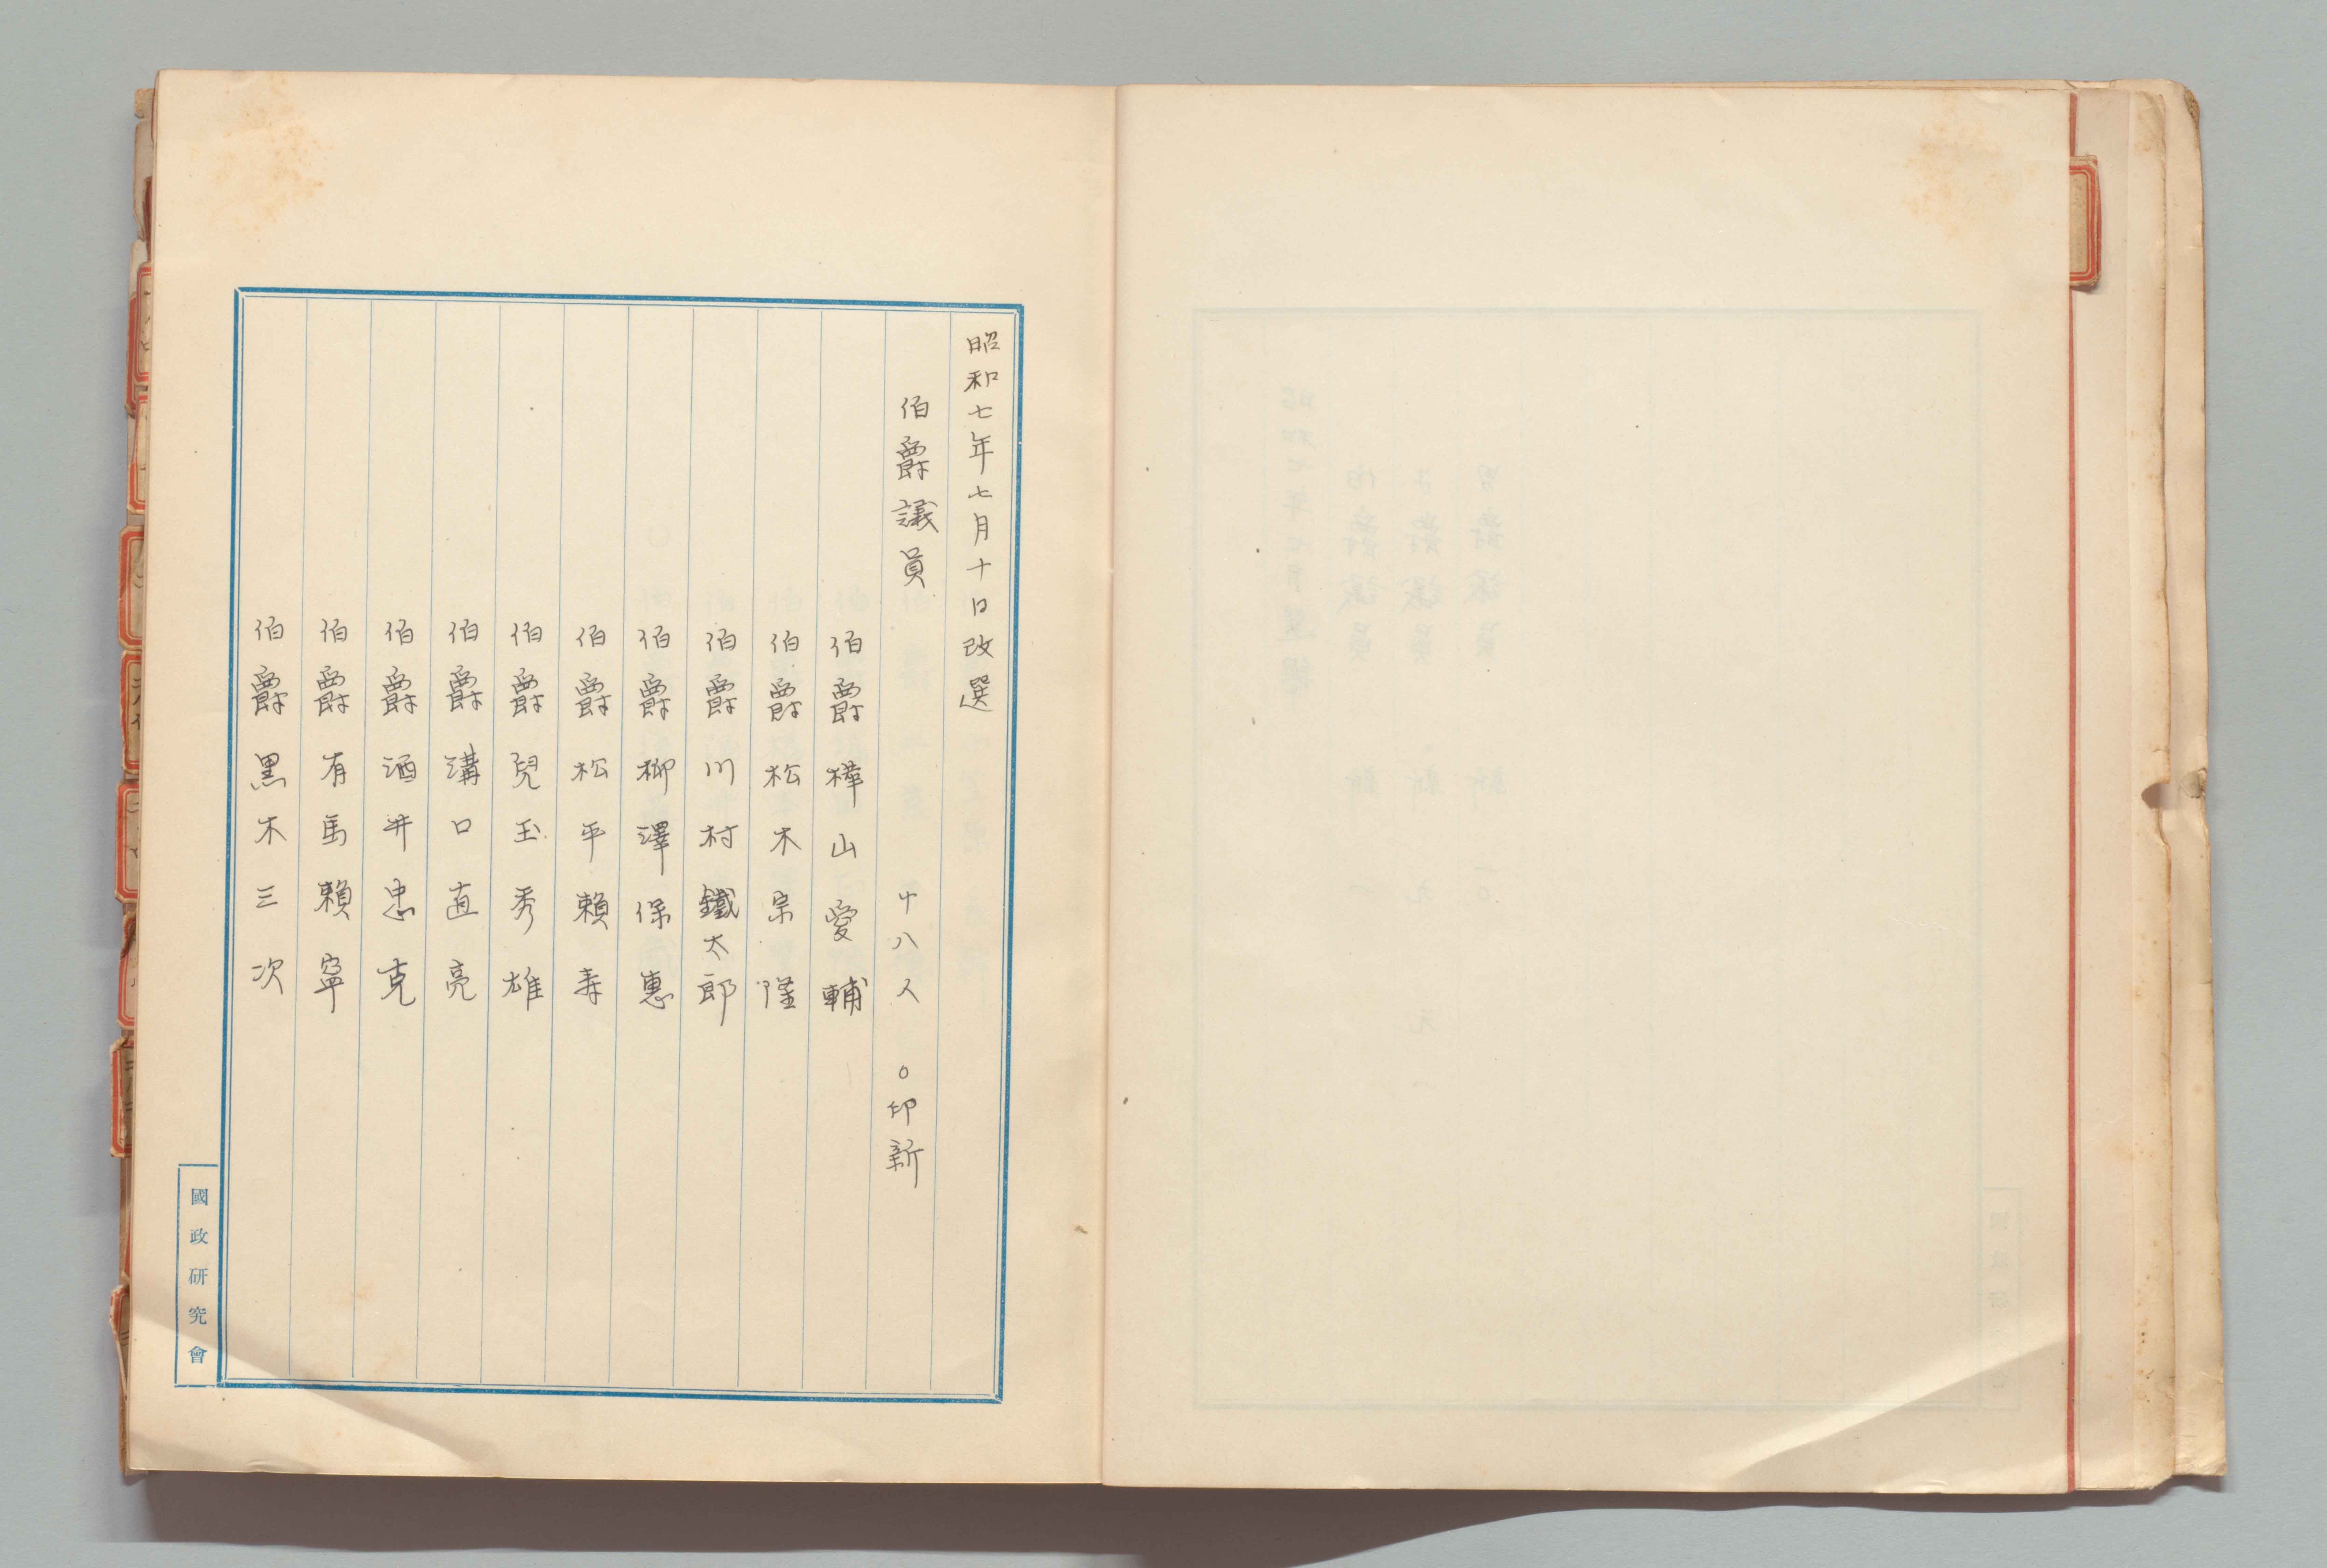 昭和七年七月十日改選
伯爵議員 十八人 〇印新
伯爵 樺山愛輔
伯爵 松木宗隆
伯爵 川村鐵太郎
伯爵 柳澤保惠
伯爵 松平賴壽
伯爵 兒玉秀雄
伯爵 溝口直亮
伯爵 酒井忠克
伯爵 有馬賴寧
伯爵 黒木三次
國政研究會